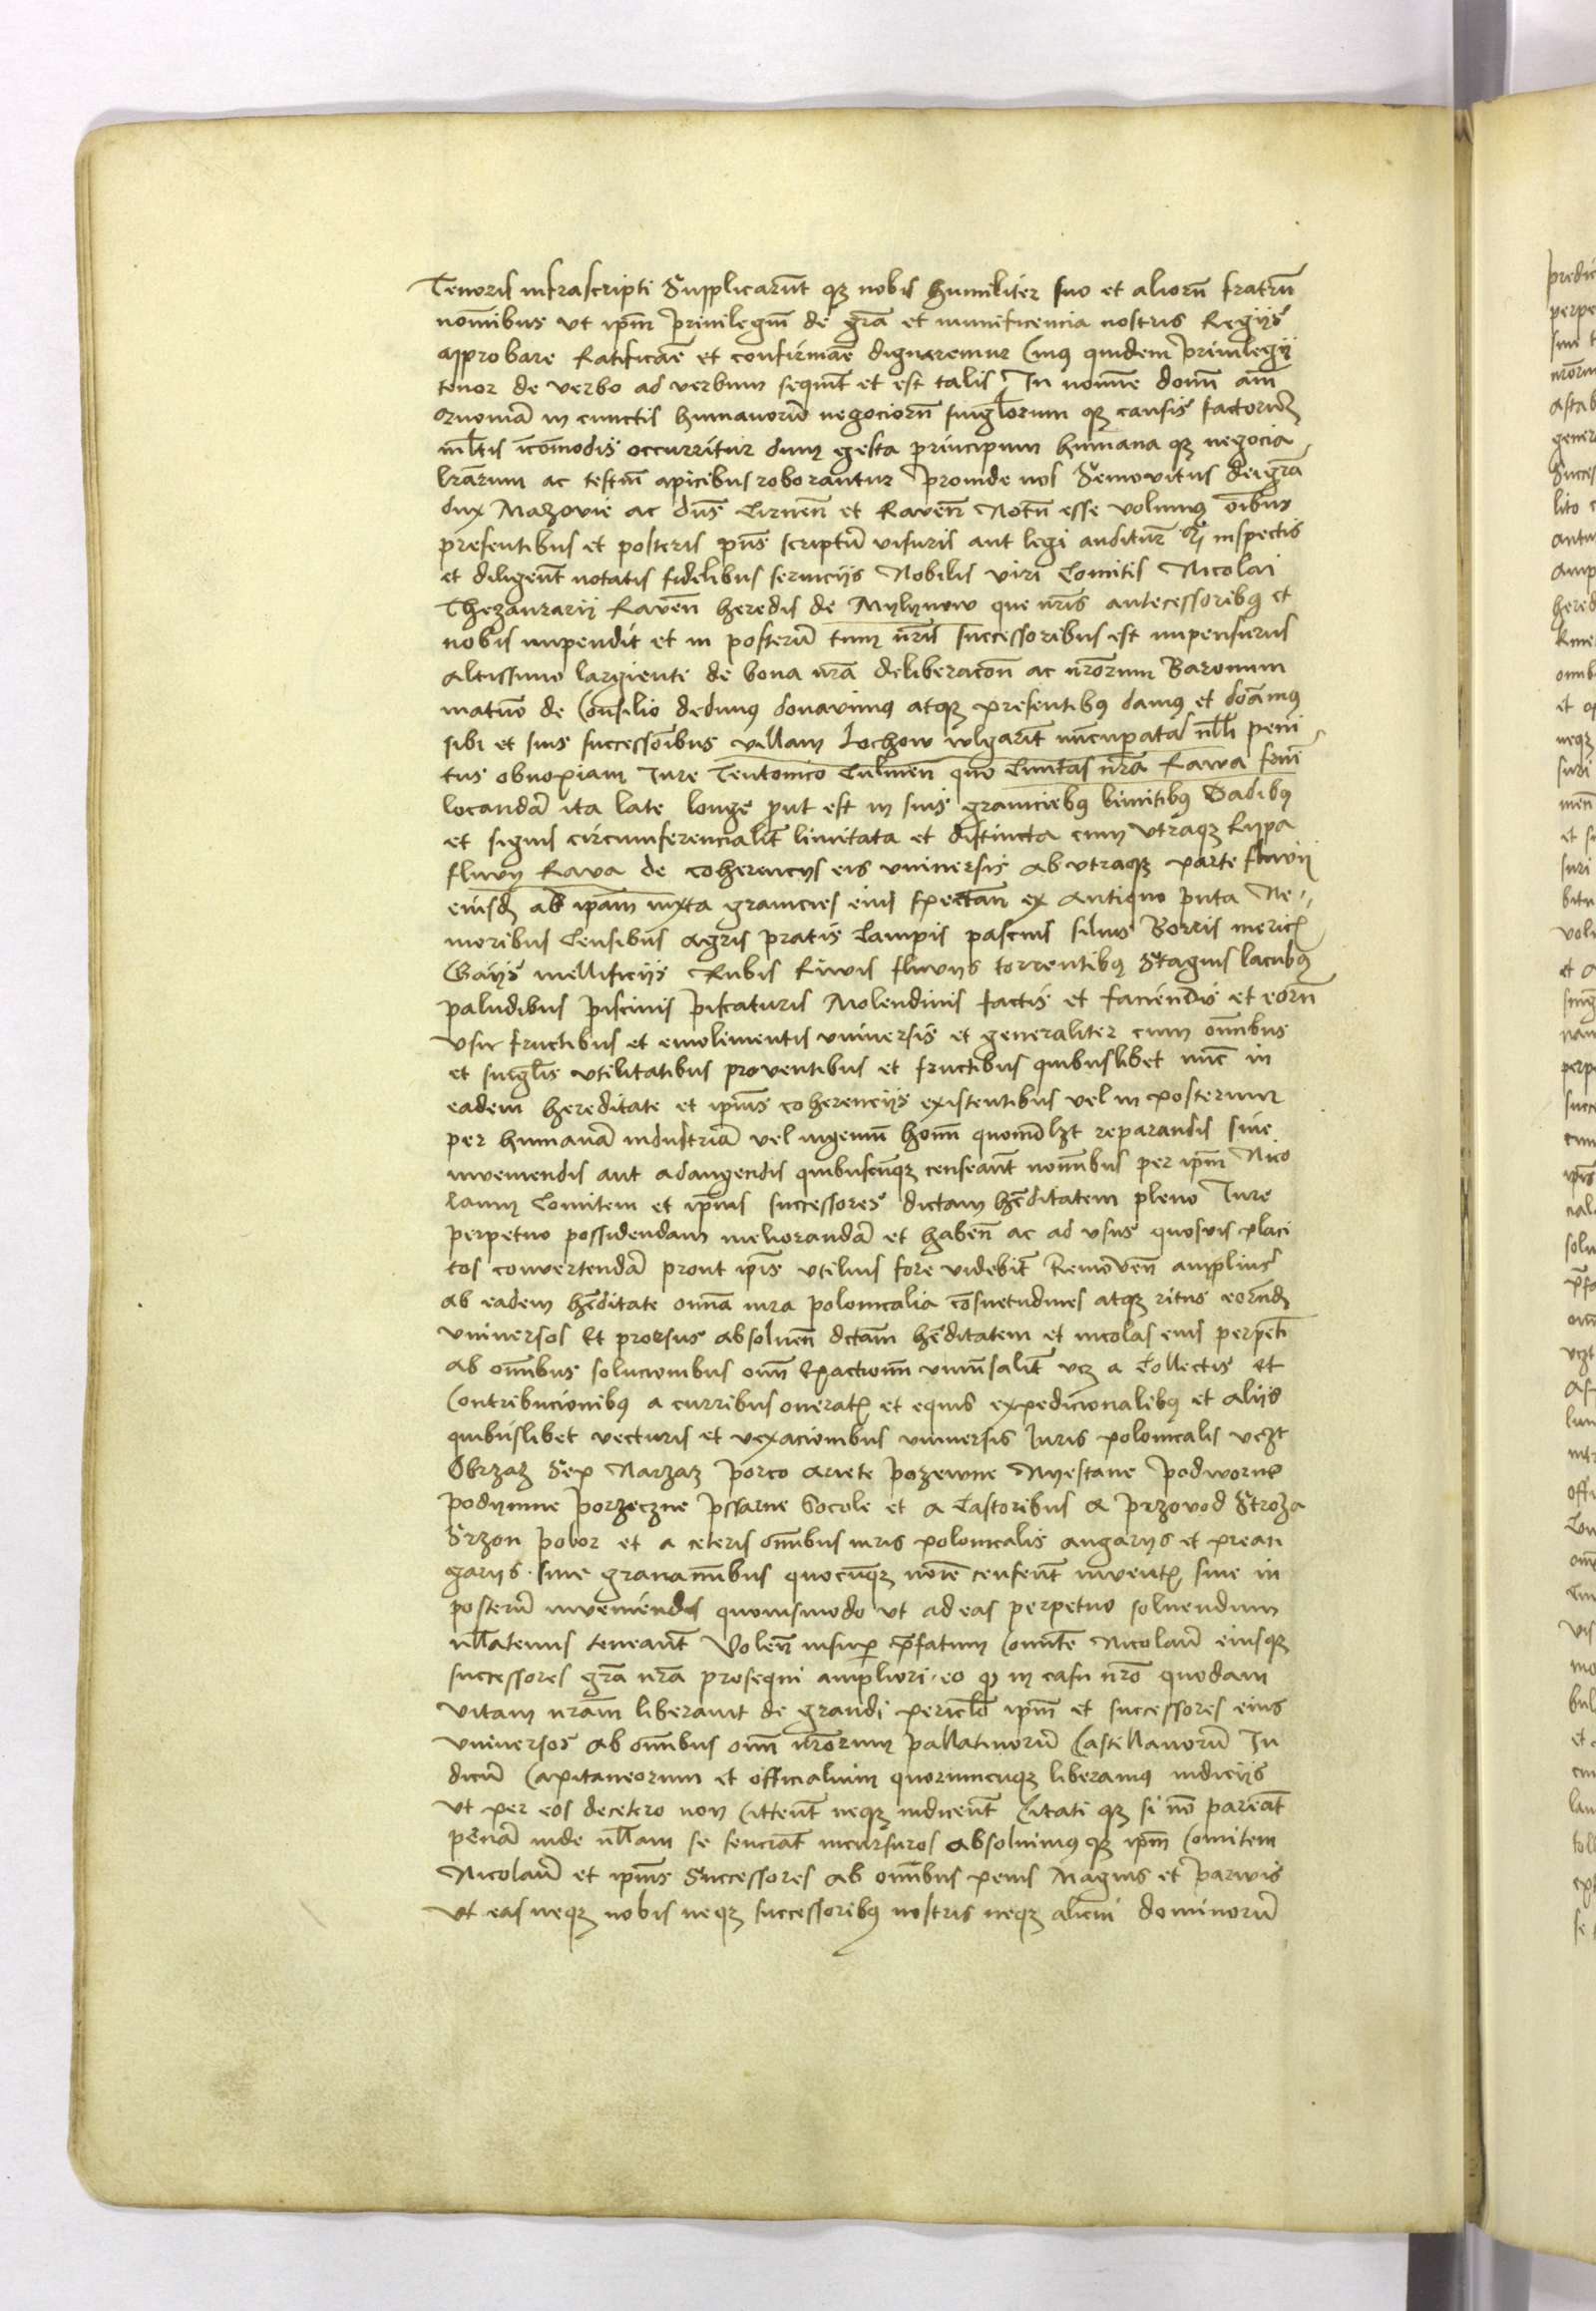 Tenoris infrascripti Supplicarunt qz nobis humiliter suo et aliorũ fratrũ
noĩnibus ut ip̃m privilegiũ de grã et munificencia nostris Regijs
approbare Ratificare et confirmare dignaremur Cuius quidem privilegij
tenor de verbo ad verbum sequit̃ et est talis In nomine domĩ amẽ
Quoniã in cunctis humanorũ negociorũ singl̃orum qz causis factorum
ml̃tis icõmodis occurritur dum gesta principum humana qz negocia
lr̃arum ac testiũ apicibus roborantur Proinde nos Semovitus dei grã
dux Mazovie ac dñs Cirneñ et Raveñ Notũ esse volumus oĩbus
presentibus et posteris pñs scriptũ visuris aut legi audituř Qz inspectis
et diligent̃ notatis fidelibus servicijs Nobilis viri Comitis Nicolai
Thezaurarij Raveñ heredis de Mylynow que nr̃is antecessoribus et
nobis impendit et in posterũ tum nr̃is successoribus est impensurus
altissimo largiente de bona nr̃a deliberacoñ ac nr̃orum Baronum
maturo de Consilio dedimus donavimus atqz presentibus damus et doãmus
sibi et suis successoribus villam Lochow wlgarit̃ nũcupatã nl̃li peni
tus obnoxiam Jure Teutonico Culmeñ quo Civitas nr̃a Rawa
locandã ita late longe put est in suis graniciebus limitibus Gadibus
et signis circumferencialit̃ limitata et distincta cum utraqz Rypa
fluvij Rava de coherencijs eius universis ab utraqz parte fluvij
eiusdẽ ab ipãm iuxta granicies eius spectañ ex antiquo puta Ne
moribus Censibus agris pratis Campis pascuis silvis Borris mericis
Gaijs mellificijs Rubis Rivis fluvijs torrentibus Stagnis lacubus
paludibus piscinis piscaturis Molendinis factis et faciendis et eorũ
usu fructibus et emolimentis universis et generaliter cum om̃ibus
et singl̃is utilitatibus proventibus et fructibus quibuslibet nũc in
eadem hereditate et ipius coherencijs existentibus vel in posterum
per humanã industriã vel ingeniũ hoĩm quomõlzt reparandis sive
inveniendis aut adaugendis quibuscũqz censeant̃ noĩnibus per ip̃m Nico
laum Comitem et ipius successores dictam hẽditatem pleno Jure
perpetuo possidendam meliorandã et habeñ ac ad usus quosvis placi
tos convertendã prout ip̃is utilius fore videbit̃ Removeñ amplius
ab eadem hẽditate om̃ia iura polonicalia cõsuetudines atqz ritus eorũdẽ
universos Et prorsus absolveñ dc̃tam hẽditatem et incolas eius perpeti
ab om̃ibus solucionibus oĩm exactionũ uniṽsalit̃ vcz a Collectis et
Contribucionibus a curribus onerat̃ et equis expedicionalibus et alijs
quibuslibet vecturis et vexacionibus universis Juris polonicalis vczt
Obrzaz Sep Narzaz porco ariete pozewne Myestane podworne
podymne porzeczne pssarne Socole et a Castoribus a przovod Stroza
Srzon pobor et a ceteris om̃ibus iuris polonicalis angarijs et prean
garijs sive gravamĩbus quocũqz noĩe censent̃ invent̃ sive in
posterũ inveniendis quovismodo ut ad eas perpetuo solvendum
nl̃latenus teneant̃ Volen̄ insup p̃fatum Comitẽ Nicolaũ eiusqz
successores grã nr̃a prosequi ampliori eo q in casu nr̃o quodam
vitam nr̃am liberavit de grandi pericl̃o ip̃m et successores eius
universos ab om̃ibus oĩm nr̃orum pallatinorũ Castellanorũ Ju
dicũ Capitaneorum et officialium quorumcuqz liberamus iudicijs
ut per eos decetero non Citent̃ neqz iudicent̃ Citati qz si nõ pareãt
penã inde nl̃lam se senciãt incursuros absolvimus qz ip̃m Comitem
Nicolaũ et ipius Successores ab om̃ibus penis Magnis et parvis
ut eas neqz nobis neqz successoribus nostris neqz alicui dominorũ